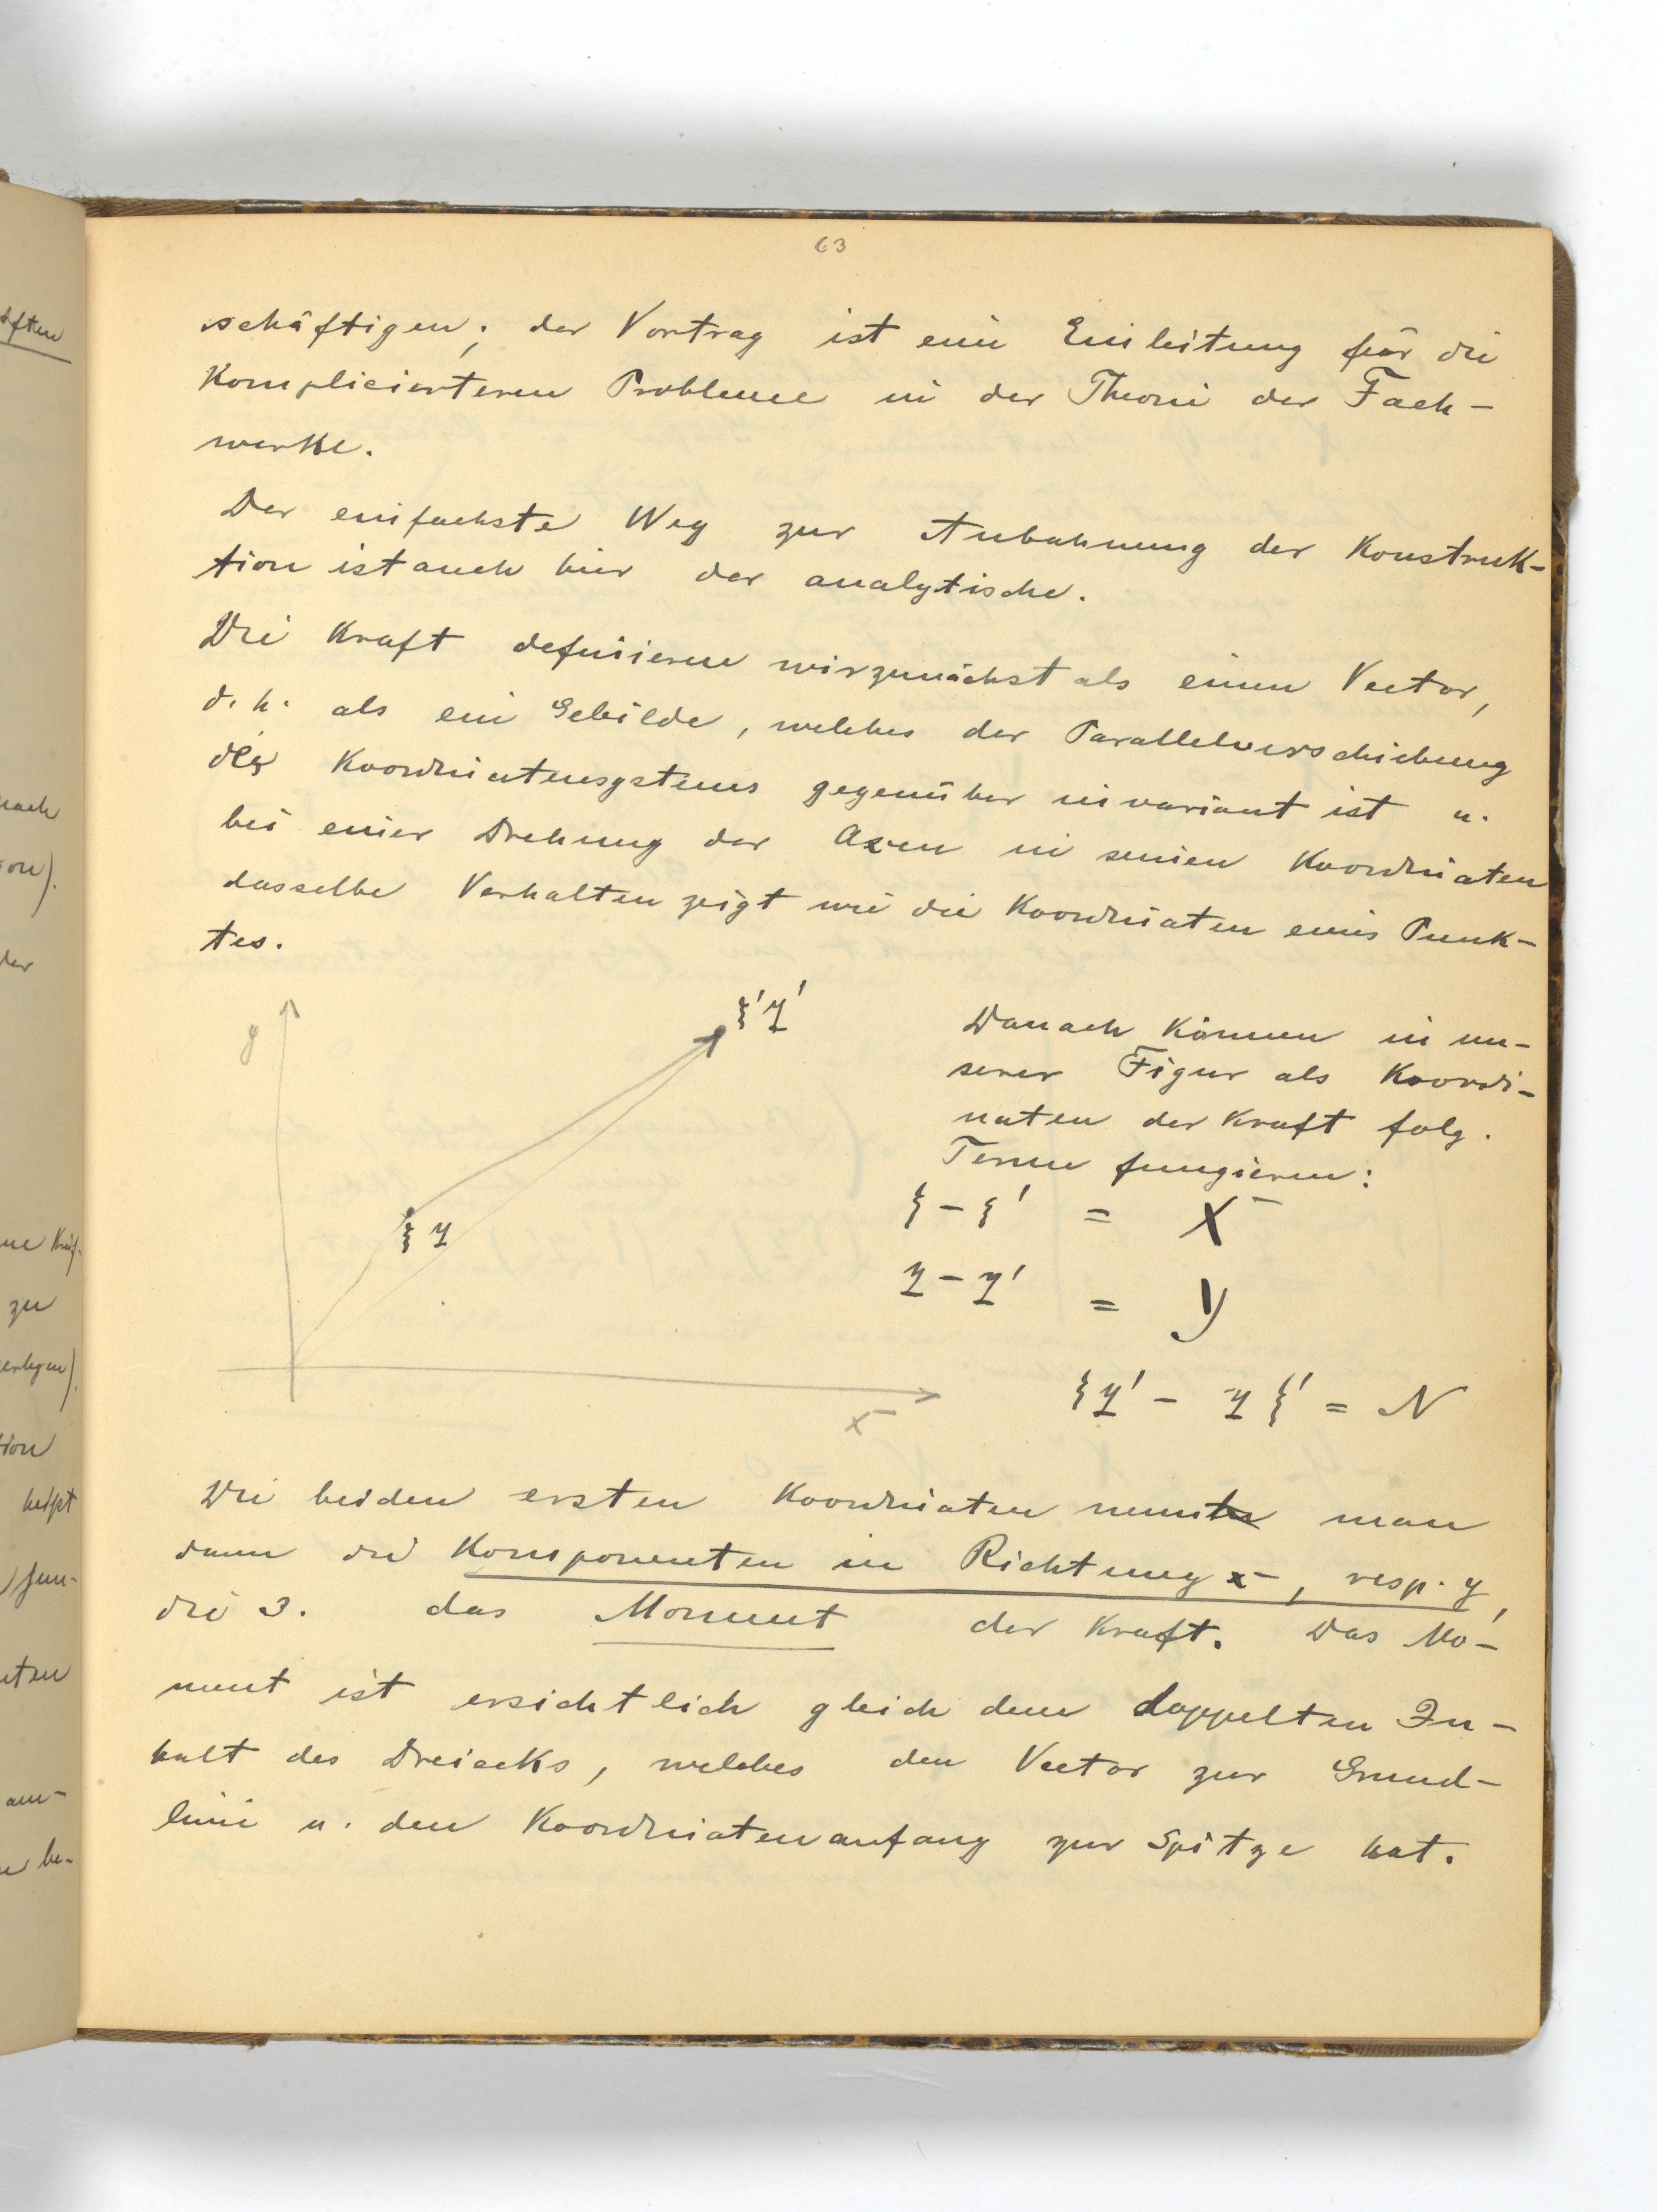 63
schäftigen; der Vortrag ist eine Einleitung für die
Komplicierteren Probleme in der Theorie der Fach-
werke.
Der einfachste Weg zur Anbahnung der Konstruk-
tion ist auch hier der analytische.
Die Kraft definieren wir zunächst als einen Vector,
d. h. als ein Gebilde, welches der Parallelverschiebung
des Koordinatensystems gegenüber invariant ist u.
bei einer Drehung der Axen in seinen Koordinaten
dasselbe Verhalten zeigt wie die Koordinaten eines Punk-
tes.
y
ξ'η'
ξ η
x
Danach können in un-
serer Figur als Koordi-
naten der Kraft folg.
Terme fungieren:
ξ - ξ' = X
η - η' = Y
ξη' - ηξ' = N
Die beiden ersten Koordinaten nennt man
dann die Komponenten in Richtung x, resp. y,
die 3. das Moment der Kraft. Das Mo-
ment ist ersichtlich gleich dem doppelten In-
halt des Dreiecks, welches den Vector zur Grund-
linie u. den Koordinatenanfang zur Spitze hat.
nach
on).
der
zu
heißt
am-
be-